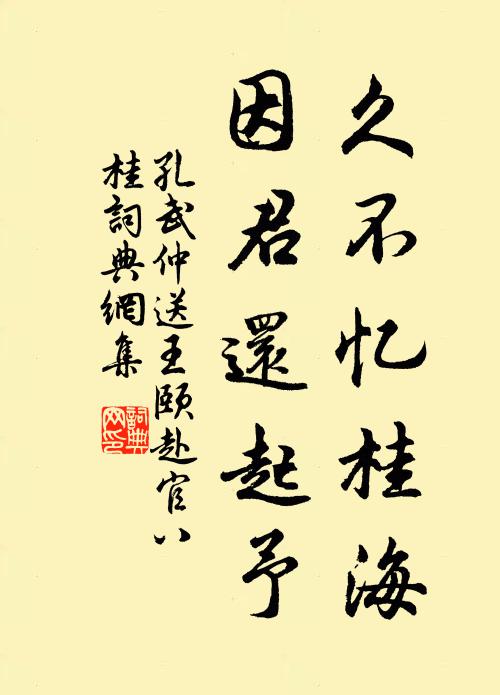 久不忆桂海
因君還起予
孔武仲送王颐赴官八
桂詞典網集
詞典
网印